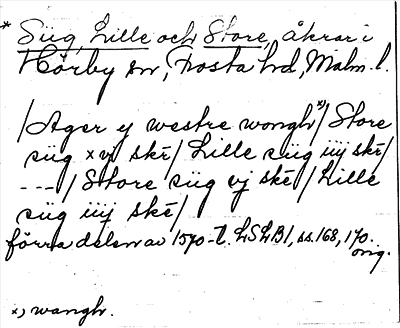 * Siig, Lille och Store, åkrar i
Hörby sn, Frosta hd, Malm. l.
/Ager y westre wongh x)/ Store
siig x vj skē/ Lille siig iiij skē/
---/ Store siig vj skē/ Lille
siig iiij skē/
förra delen av 1570-t. LSLB1, ss. 168, 170.
orig.
x) wangh.